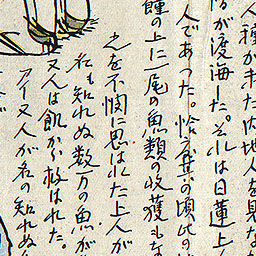 人種が未だ内地人を見な
が渡海した。それは日蓮上
人であつた。恰度其の頃此の
饉の上に一尾の魚類の收獲もな
之を不憫に思はれた上人が
名も知れぬ数万の魚が
ヌ人は飢から救はれた。
アイヌ人が名の知れぬ